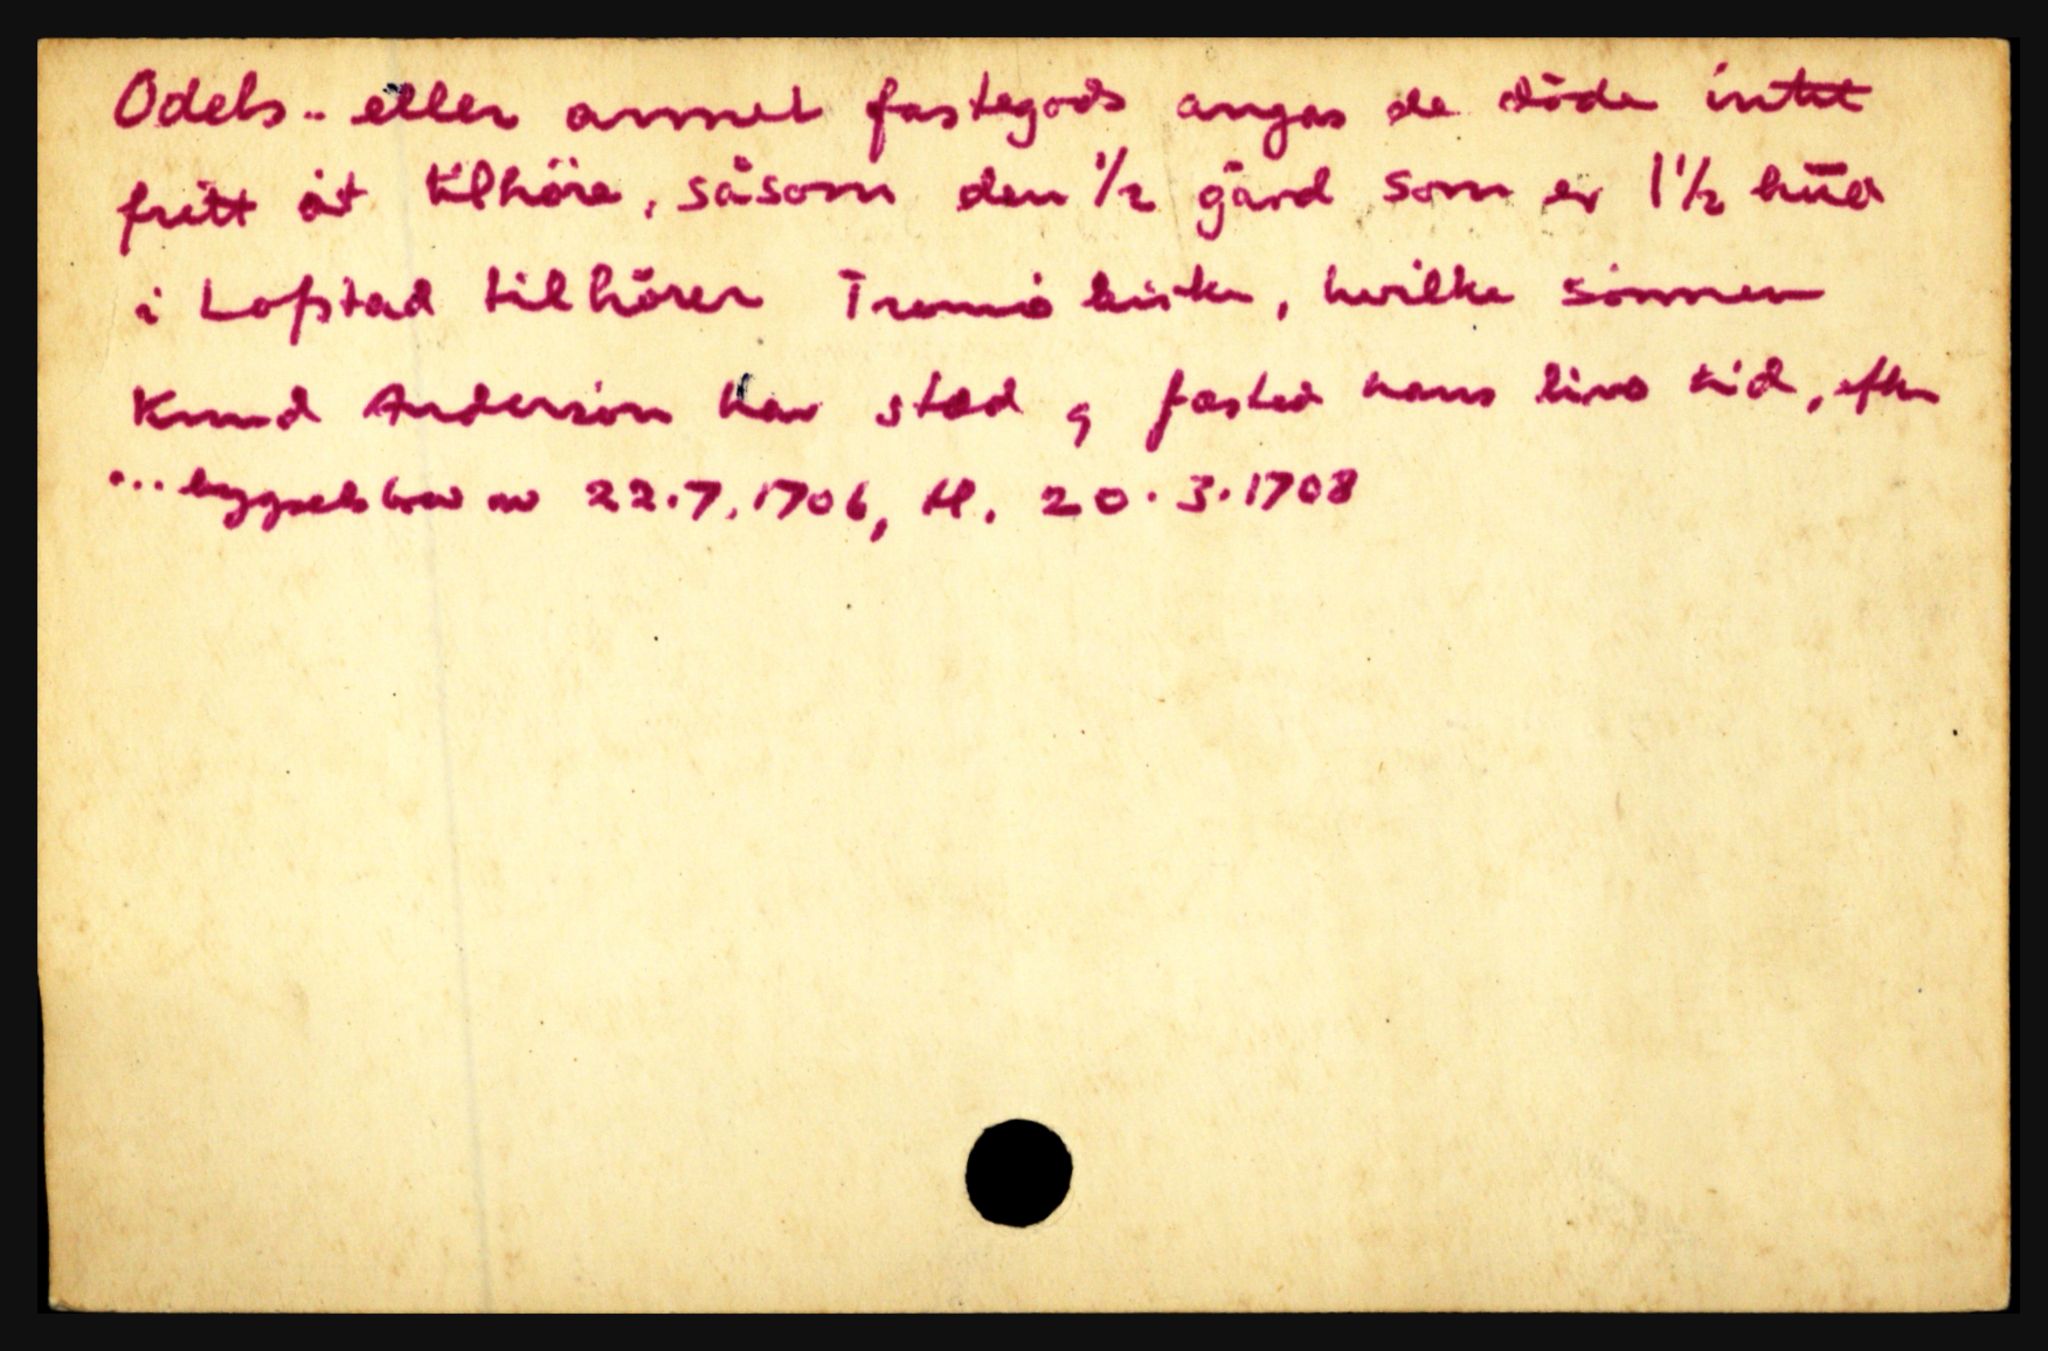 Odels.. eller annet fastegods angas de döde intet
fritt åt tilhöre, såsom den 1/2 gård som er 1 1/2 hüd
i Lofstad tilhörer Tromö kirke, hvilke sönnen
Knud Anderson har sted og fæsted hans livs tid, efter
... bygselsbrev av 22.7.1706, tl. 20.3.1708